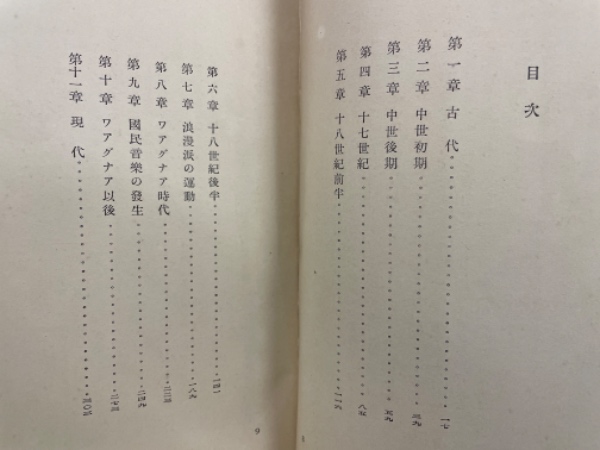 目次
第一章 古代
一七
第二章 中世初期
第三章 中世後期
第四章 十七世紀
八五
第五章 十八世紀前半
第六章 十八世紀後半
第七章 浪漫派の運動
一八九
第八章 ワアグナア時代
第九章 國民音樂の發生
二四九
第十章 ワアグナア以後
第十一章 現代
9